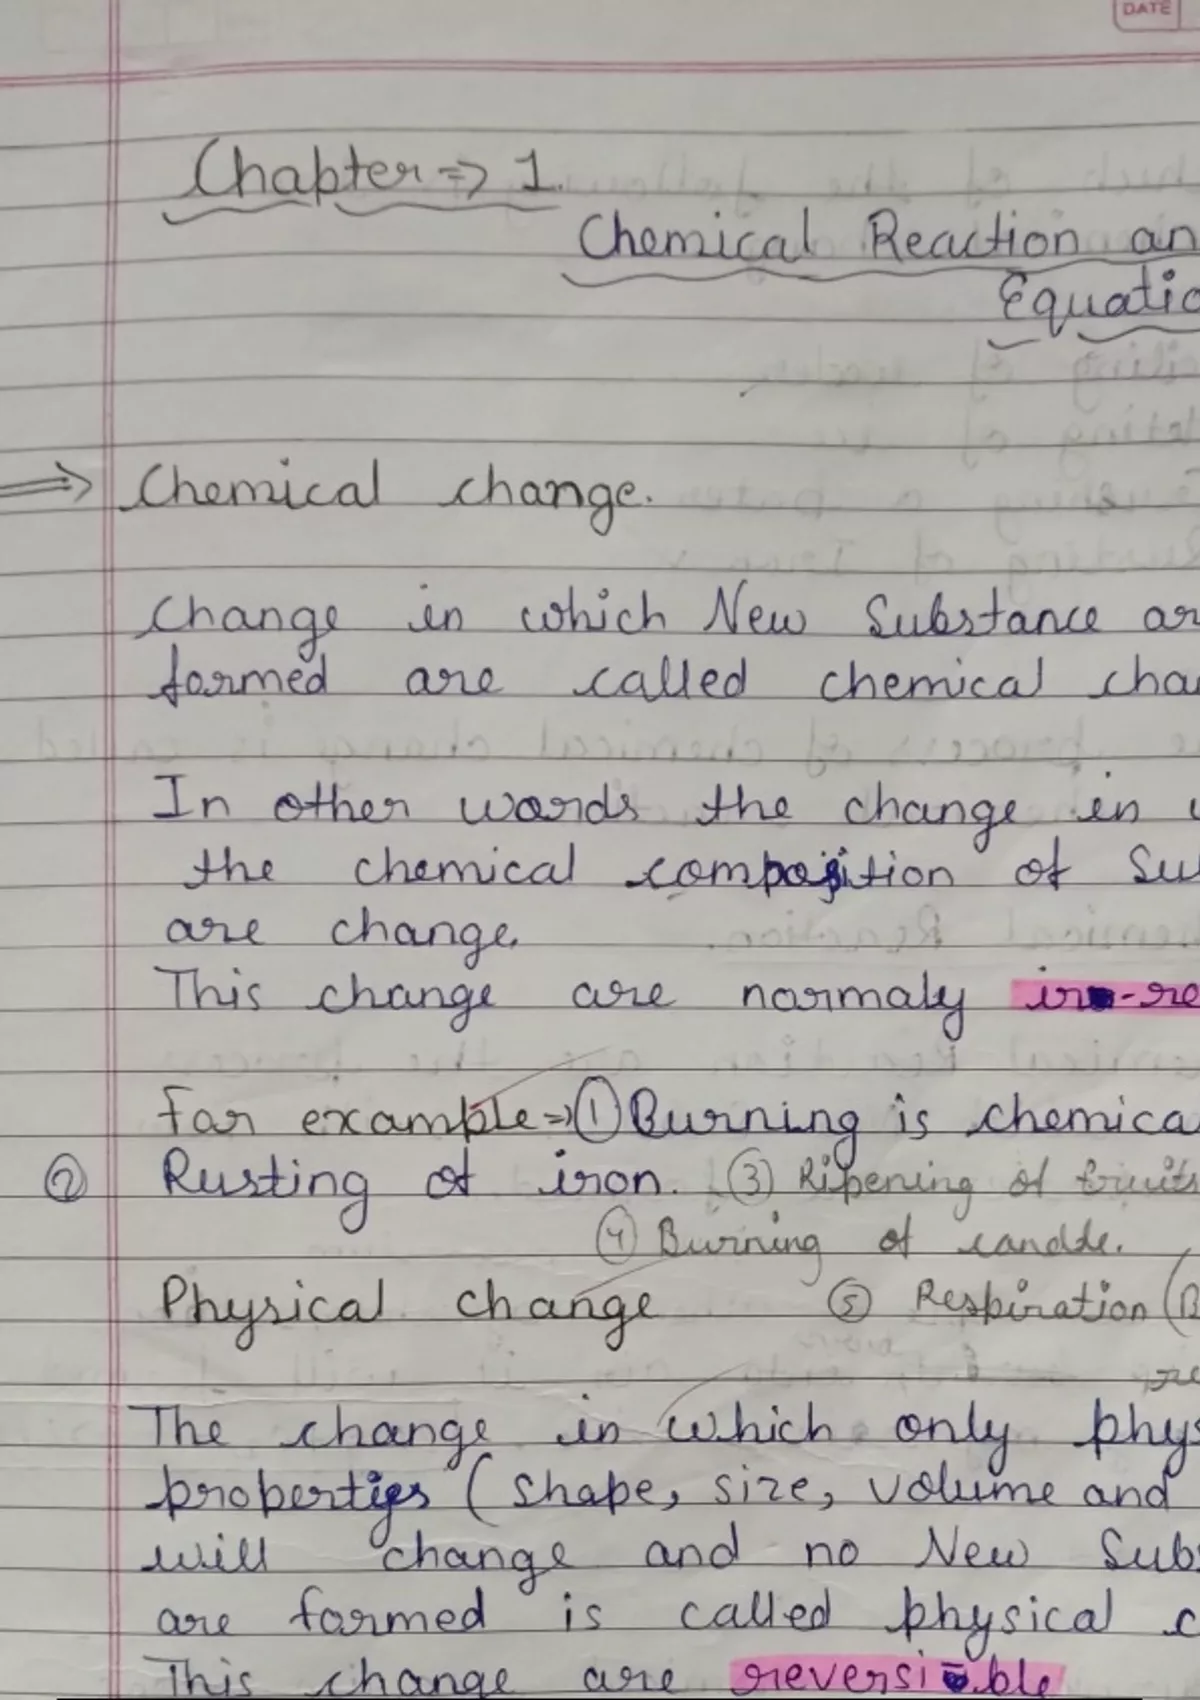 DATE
Chapter => 1.
Chemical Reaction an
Equatio
=> Chemical change.
Change in which New Substance ar
formed are called chemical cha
In other words the change in
the chemical composition of Sub
are change.
This change are normaly ir-re
For example => ① Burning is chemica
② Rusting of iron. ③ Ripening of fruits
④ Burning of candle.
Physical change ⑤ Respiration (
re
The change in which only phys
properties (shape, size, volume and
will change and no New Subs
are formed is called physical c
This change are reversible